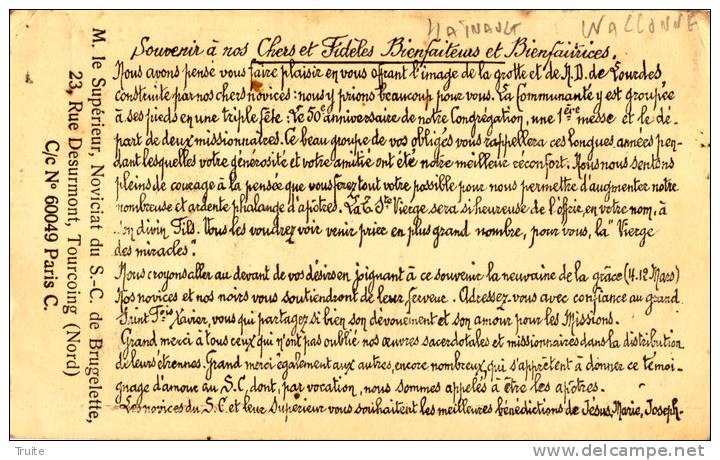 HAINAULT WALLONNE
Souvenir à nos Chers et Fidèles Bienfaiteurs et Bienfaitrices.
Nous avons pensé vous faire plaisir en vous offrant l'image de la grotte et de N.D. de Lourdes
construite par nos chers novices : nous y prions beaucoup pour vous. La Communauté y est groupée
à ses pieds en une triple fête : le 50e anniversaire de notre Congrégation, une 1ère messe et le dé-
part de deux missionnaires. Ce beau groupe de vos obligés vous rappellera ces longues années pen-
dant lesquelles votre générosité et votre amitié ont été notre meilleur réconfort. Nous nous sentons
pleins de courage à la pensée que vous ferez tout votre possible pour nous permettre d'augmenter notre
nombreuse et ardente phalange d'apôtres. La T. Ste Vierge sera si heureuse de l'offrir, en votre nom, à
son divin Fils. Vous les voudrez voir venir prier en plus grand nombre, pour vous, la "Vierge
des miracles".
Nous croyons aller au devant de vos désirs en joignant à ce souvenir la neuvaine de la grâce (4-12 Mars)
Nos novices et nos noirs vous soutiendront de leur ferveur. Adressez-vous avec confiance au grand
Saint Fçois Xavier, vous qui partagez si bien son dévouement et son amour pour les Missions.
Grand merci à tous ceux qui n'ont pas oublié nos œuvres sacerdotales et missionnaires dans la distribution
de leurs étrennes. Grand merci également aux autres, encore nombreux, qui s'apprêtent à donner ce témoi-
gnage d'amour au S.C, dont, par vocation, nous sommes appelés à être les apôtres.
Les novices du S.C et leur Supérieur vous souhaitent les meilleures bénédictions de Jésus, Marie, Joseph-
M. le Supérieur, Noviciat du S.-C. de Brugelette,
23, Rue Desurmont, Tourcoing (Nord)
C/c N° 60049 Paris C.
Truite
delcampe.net